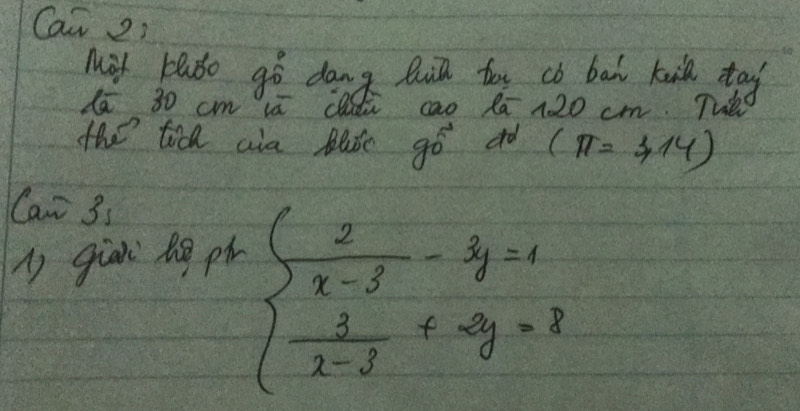 Câu 2:
Một khúc gỗ dạng hình trụ có bán kính đáy
là 30 cm và chiều cao là 120 cm. Tính
thể tích của khúc gỗ đó (π = 3,14)
Câu 3:
1) giải hệ pt { 2/(x-3) - 3y = 1
3/(x-3) + 2y = 8